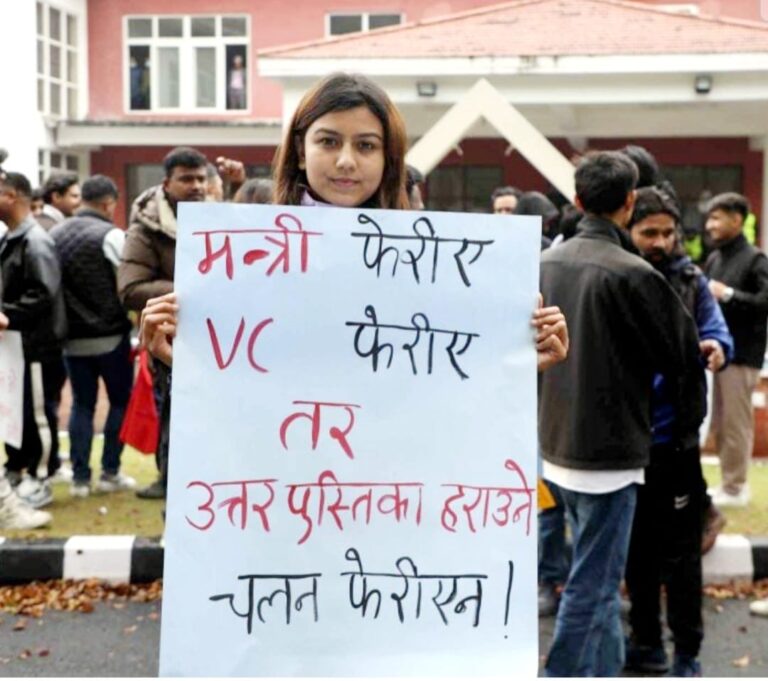 मन्त्री फेरीए
VC फेरीए
तर
उत्तर पुस्तिका हराउने
चलन फेरीएन!